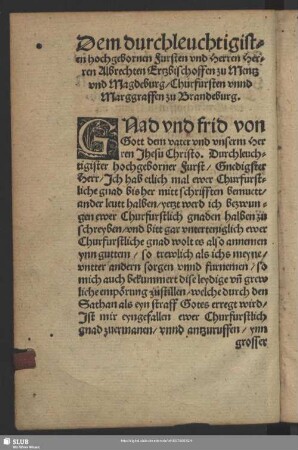 Dem durchleuchtigist-
en hochgebornen Fursten vnd Herren Her-
ren Albrechten Ertzbischoffen zu Mentz
vnd Magdeburg/ Churfursten vnnd
Marggraffen zu Brandeburg.
GNad vnd frid von
Gott dem vater vnd vnserm Her
ren Jhesu Christo. Durchleuch-
tigister hochgeborner Furst/ Gnedigster
Herr/ Ich hab etlich mal ewer Churfurst-
liche gnad bis her mitt schrifften bemuett/
ander leutt halben/ yetzt werd ich bezwun-
gen ewer Churfurstlich gnaden halben zu
schreyben/ vnd bitt gar vnterteniglich ewer
Churfurstliche gnad wolt es also annemen
ynn guttem/ so trewlich als ichs meyne/
vntter andern sorgen vnnd furnemen/ so
mich auch bekummert dise leydige vñ grew
liche empörung zustillen/ welche durch den
Sathan als eyn straff Gottes erregt wird/
Ist mir eyngefallen ewer Churfurstlich
gnad zuermanen/ vnnd antzuruffen/ ynn
grosser
SLUB